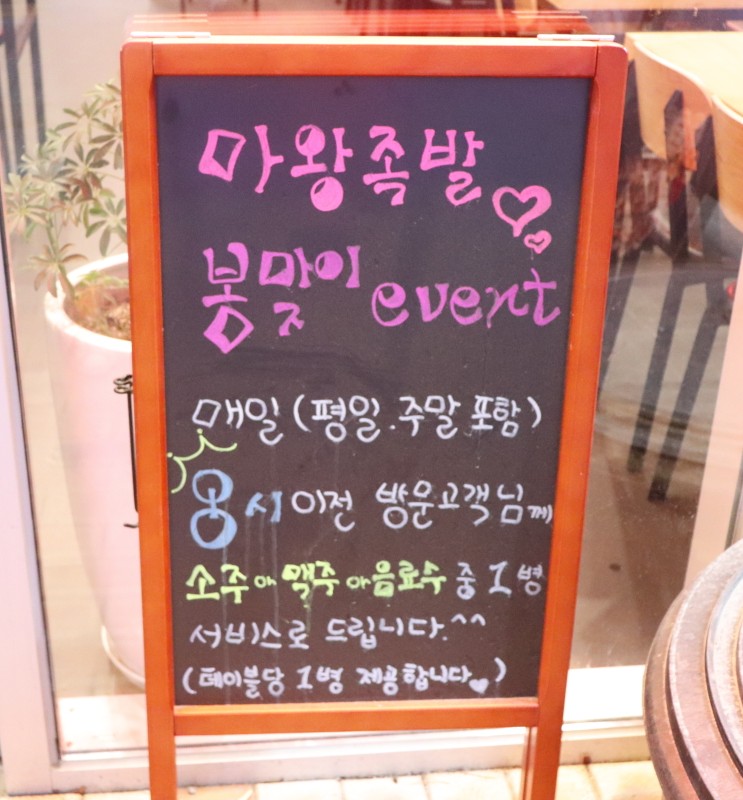 마왕족발
봄맞이 event
매일 (평일.주말 포함)
8시 이전 방문고객님께
소주 or 맥주 or 음료수 중 1병
서비스로 드립니다.^^
(테이블당 1병 제공합니다)